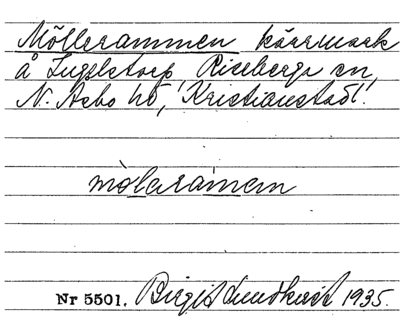 Möllerammen kärrmark
å Ingelstorp, Riseberga sn,
N. Åsbo hd, Kristianstad l.
mòleramen
Nr 5501. Birgit Lundkvist 1935.